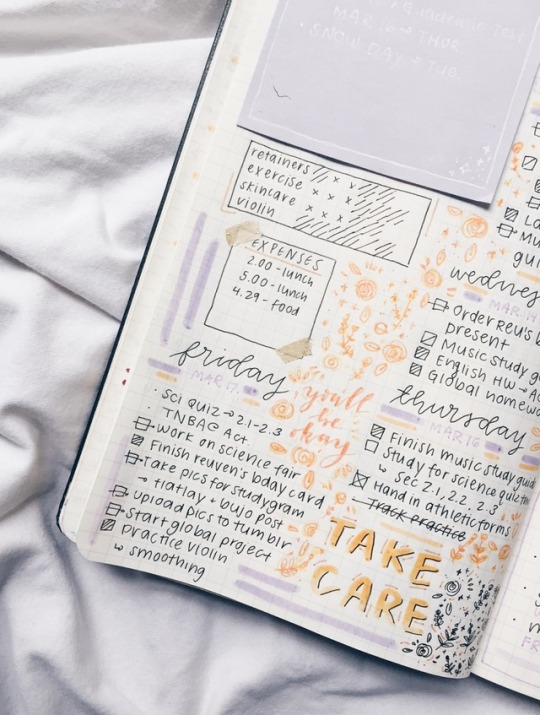 MAR 16 → THUR
• SNOW DAY → TUE
retainers
exercise
skincare
violin
EXPENSES
2.00 - lunch
5.00 - lunch
4.29 - food
friday
MAR. 17
• Sci Quiz → 2.1-2.3
• TNBAC Act.
work on science fair
Finish reuven's bday card
Take pics for studygram
→ flatlay + bujo post
upload pics to tumblr
Start global project
Practice violin
↳ smoothing
you'll
be
okay
wednes
MAR.
Order Reu's
present
Music study g
English HW →
Global homewo
thursday
MAR 16
Finish music study guide
Study for science quiz
↳ Sec 2.1, 2.2, 2.3
Hand in athletic forms
Track practice
TAKE
CARE